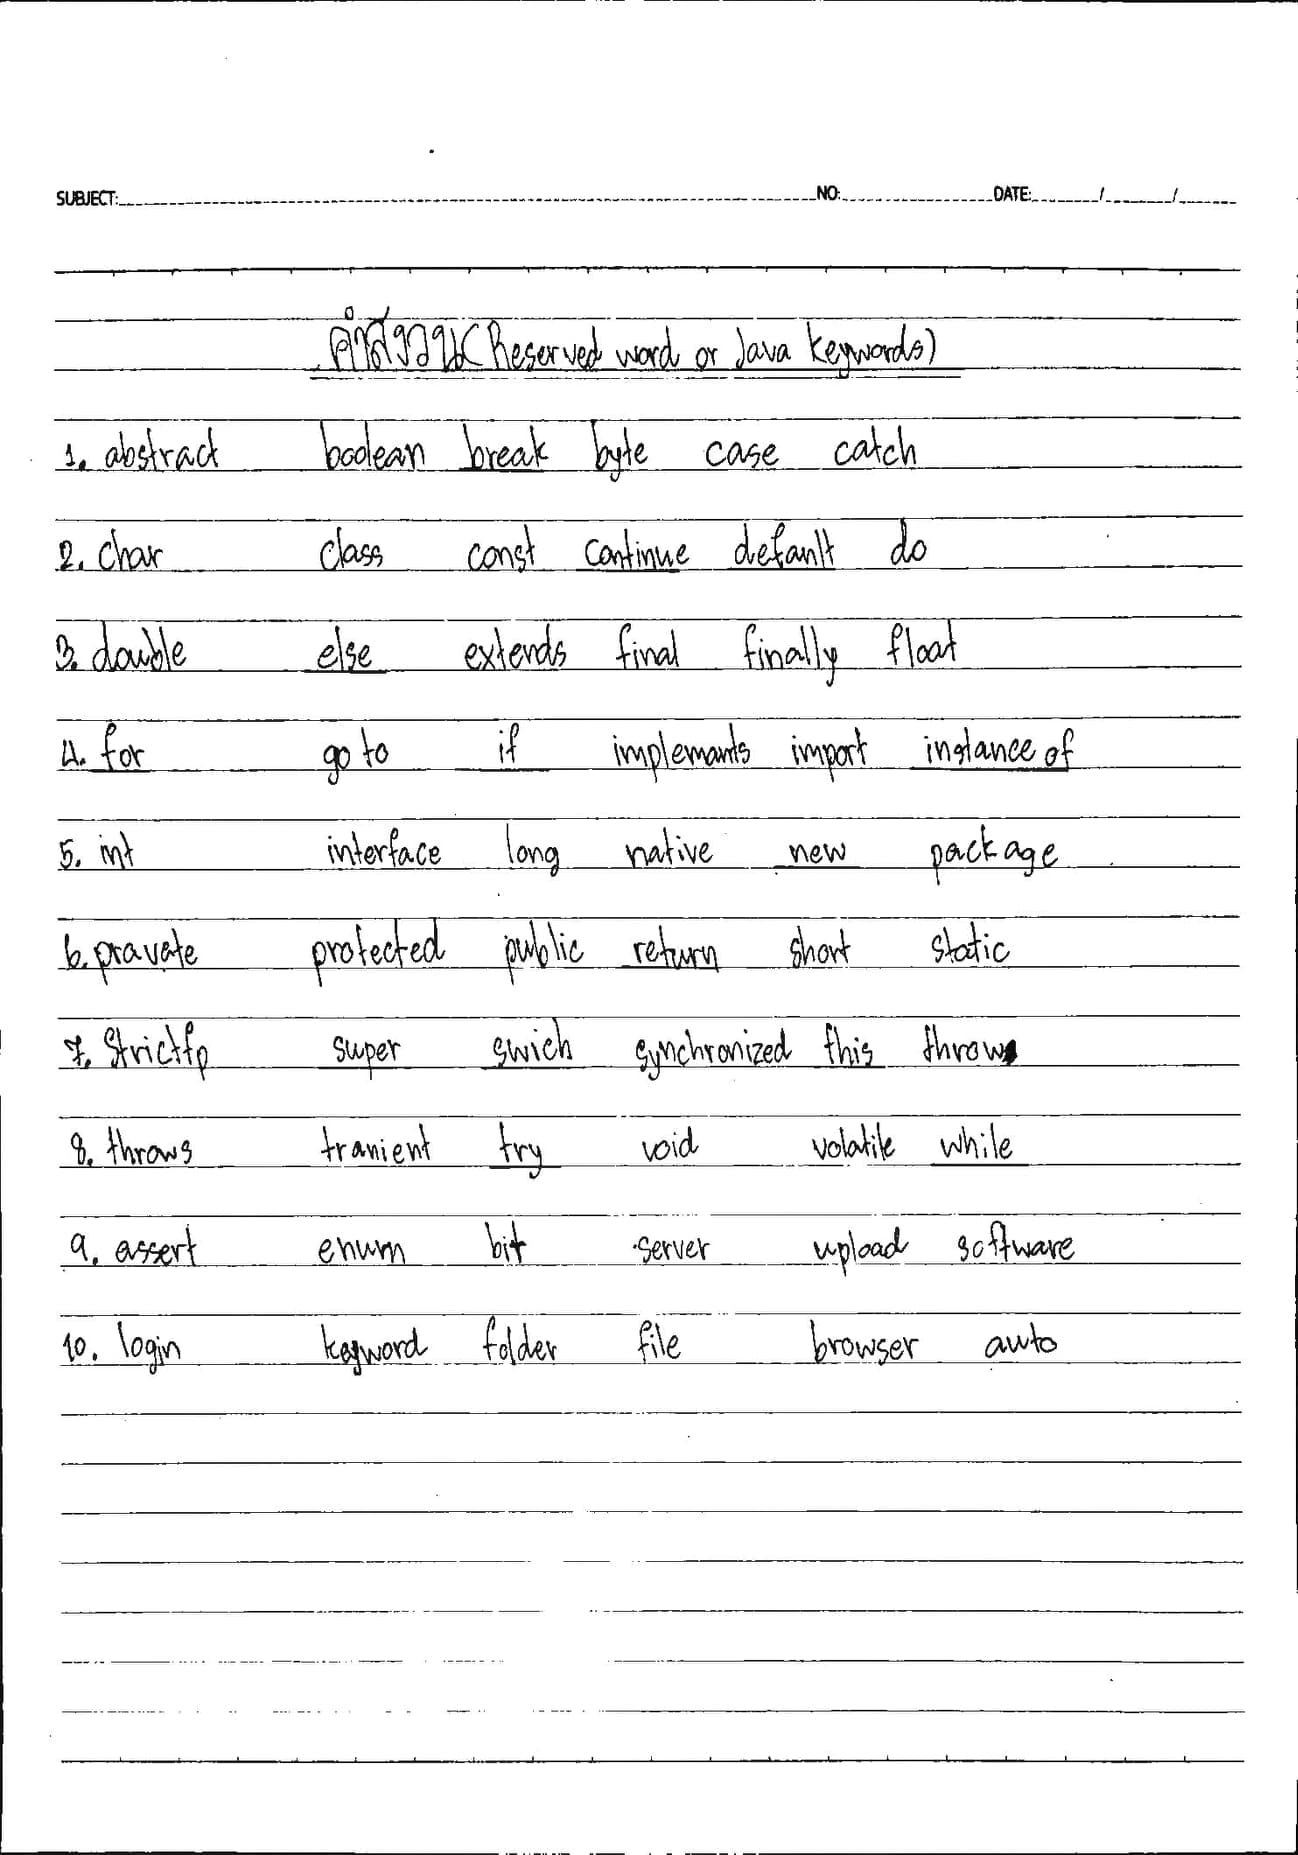 SUBJECT: NO: DATE: / /
คำสงวน(Reserved word or Java keywords)
1. abstract boolean break byte case catch
2. char class const continue default do
3. double else extends final finally float
4. for go to if implemants import instance of
5. int interface long native new package
6. pravate protected public return short static
7. Strictfp super swich synchronized this throw
8. throws tranient try void volatile while
9. assert enum bit server upload software
10. login keyword folder file browser auto